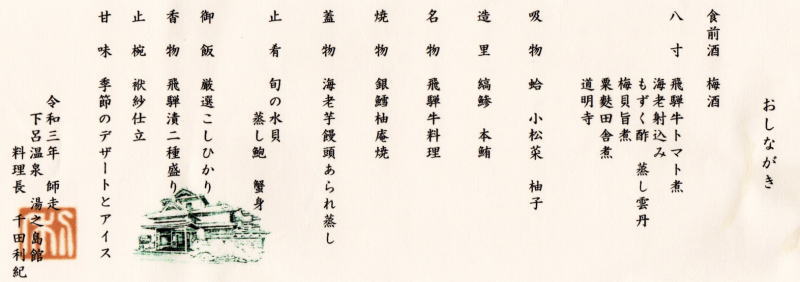 おしながき
食前酒 梅酒
八寸 飛騨牛トマト煮
海老射込み
もずく酢 蒸し雲丹
梅貝旨煮
粟麩田舎煮
道明寺
吸物 蛤 小松菜 柚子
造里 縞鯵 本鮪
名物 飛騨牛料理
焼物 銀鱈柚庵焼
蓋物 海老芋饅頭あられ蒸し
止肴 旬の水貝
蒸し鮑 蟹身
御飯 厳選こしひかり
香物 飛騨漬二種盛り
止椀 袱紗仕立
甘味 季節のデザートとアイス
令和三年 師走
下呂温泉 湯之島館
料理長 千田利紀